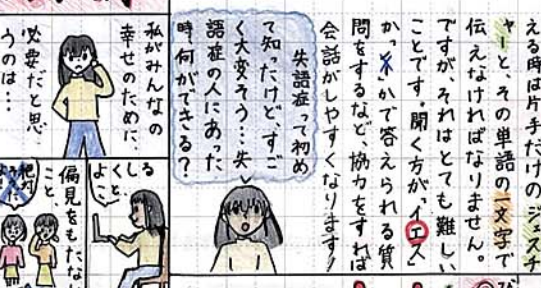 える時は片手だけのジェスチ
ャーと、その単語の一文字で
伝えなければなりません。
ですが、それはとても難しい
ことです。聞く方が「イエス」
かノーかで答えられる質
問をするなど、協力をすれば
会話がしやすくなります!
失語症って初め
て知ったけど、すご
く大変そう…失
語症の人にあった
時、何ができる?
私がみんなの
幸せのために、
必要だと思
うのは…
しる
くと
よ
こ
偏見をもたな
こと
絶対